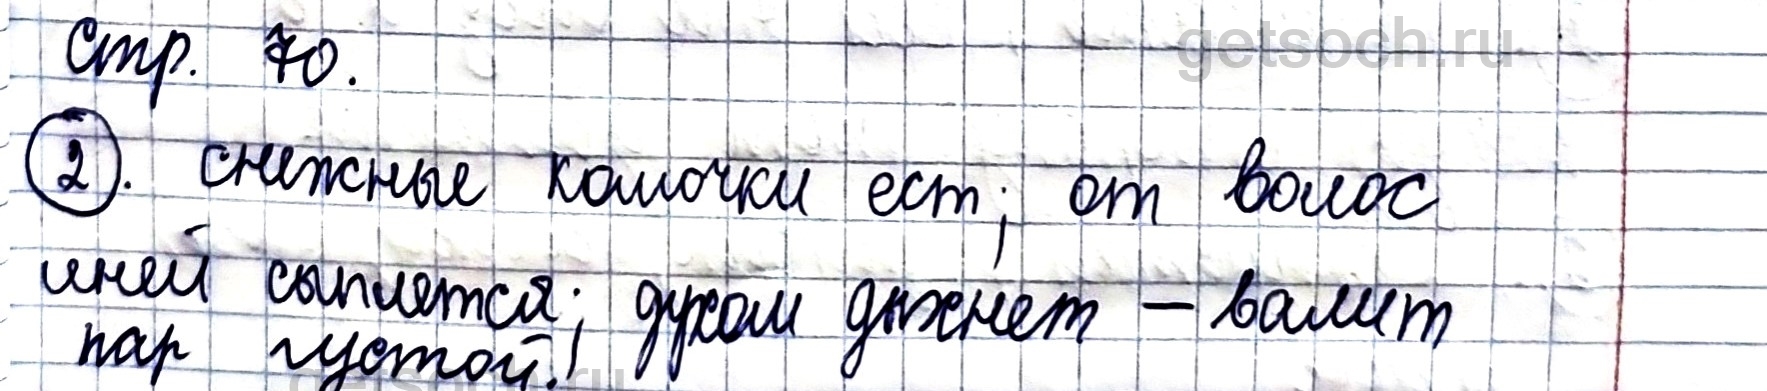 getsoch.ru
Стр. 70.
2. снежные комочки ест; от волос
иней сыплется; духом дыхнет – валит
пар густой!
getsoch.ru